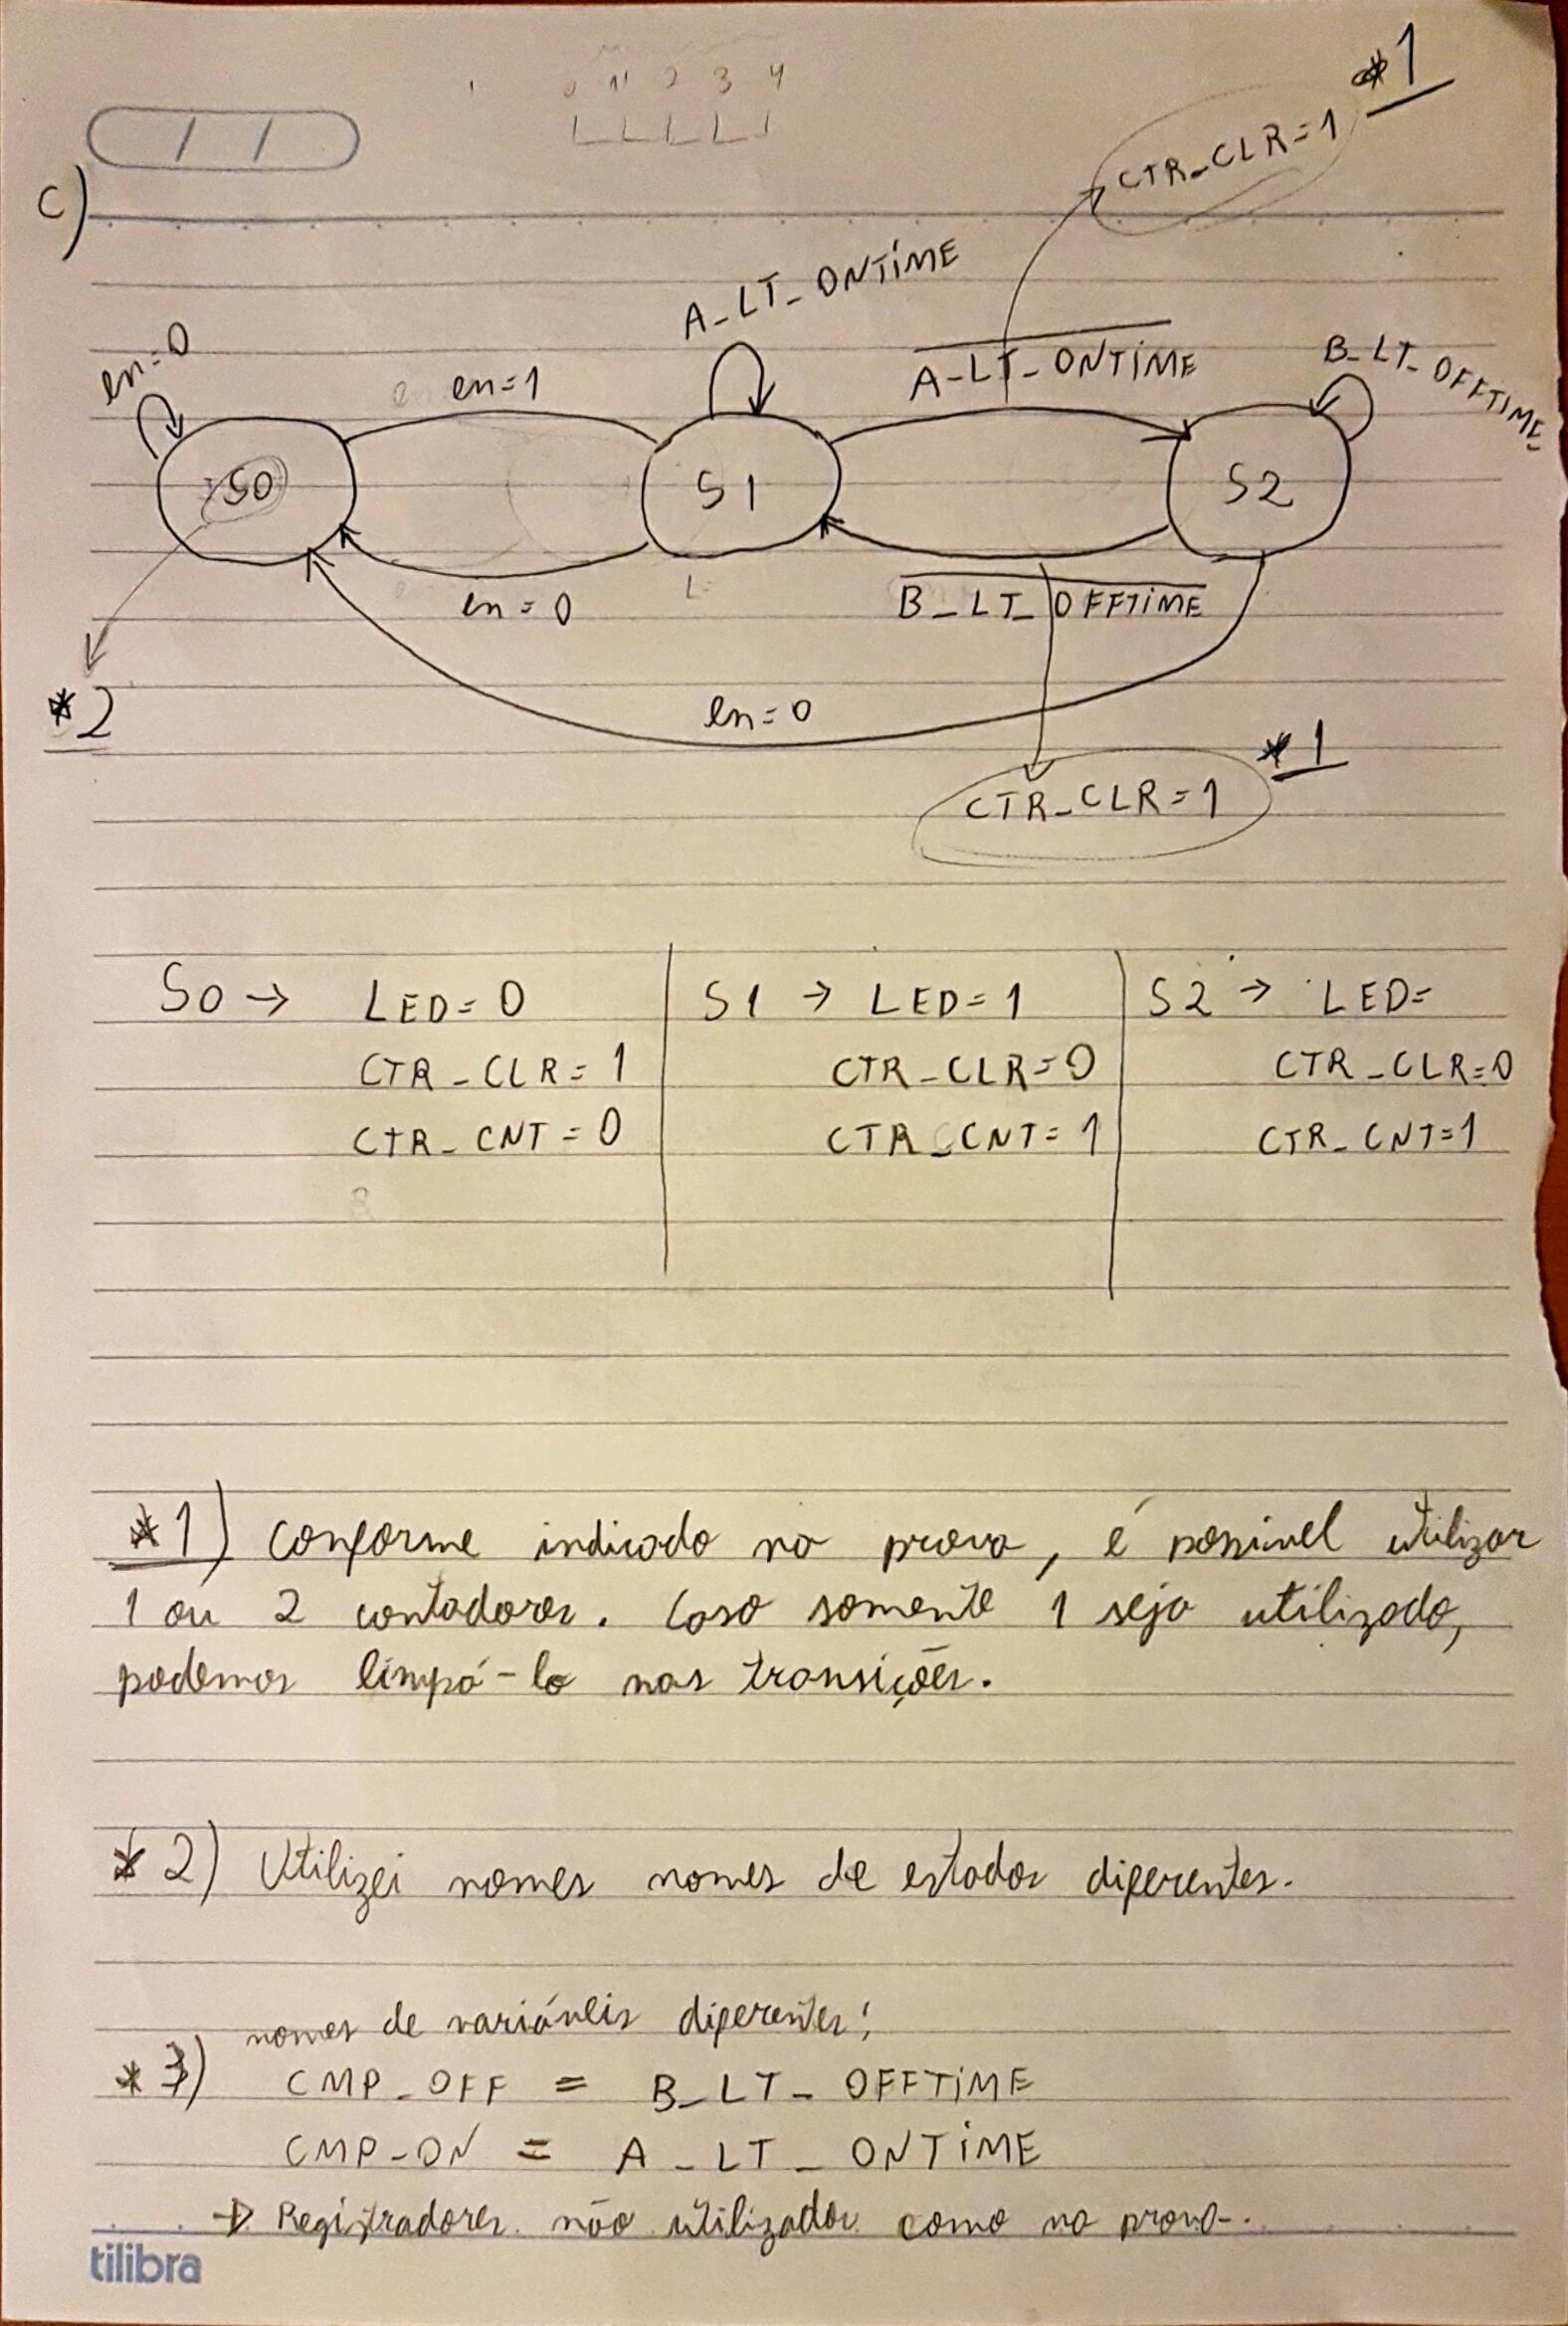 0 1 2 3 4
*1
CTR_CLR=1
C)
A_LT_ONTIME
en=0
en=1
A_LT_ONTIME
B_LT_OFFTIME
S0
S1
S2
en=0
B_LT_OFFTIME
*2
en=0
*1
CTR_CLR=1
S0 → LED=0
CTR_CLR=1
CTR_CNT=0
S1 → LED=1
CTR_CLR=0
CTR_CNT=1
S2 → LED=
CTR_CLR=0
CTR_CNT=1
*1) Conforme indicado na prova, é possível utilizar
1 ou 2 contadores. Caso somente 1 seja utilizado,
podemos limpá-lo nas transições.
*2) Utilizei nomes nomes de estados diferentes.
nomes de variáveis diferentes:
*3) CMP_OFF = B_LT_OFFTIME
CMP_ON = A_LT_ONTIME
→ Registradores não utilizados como na prova.
tilibra